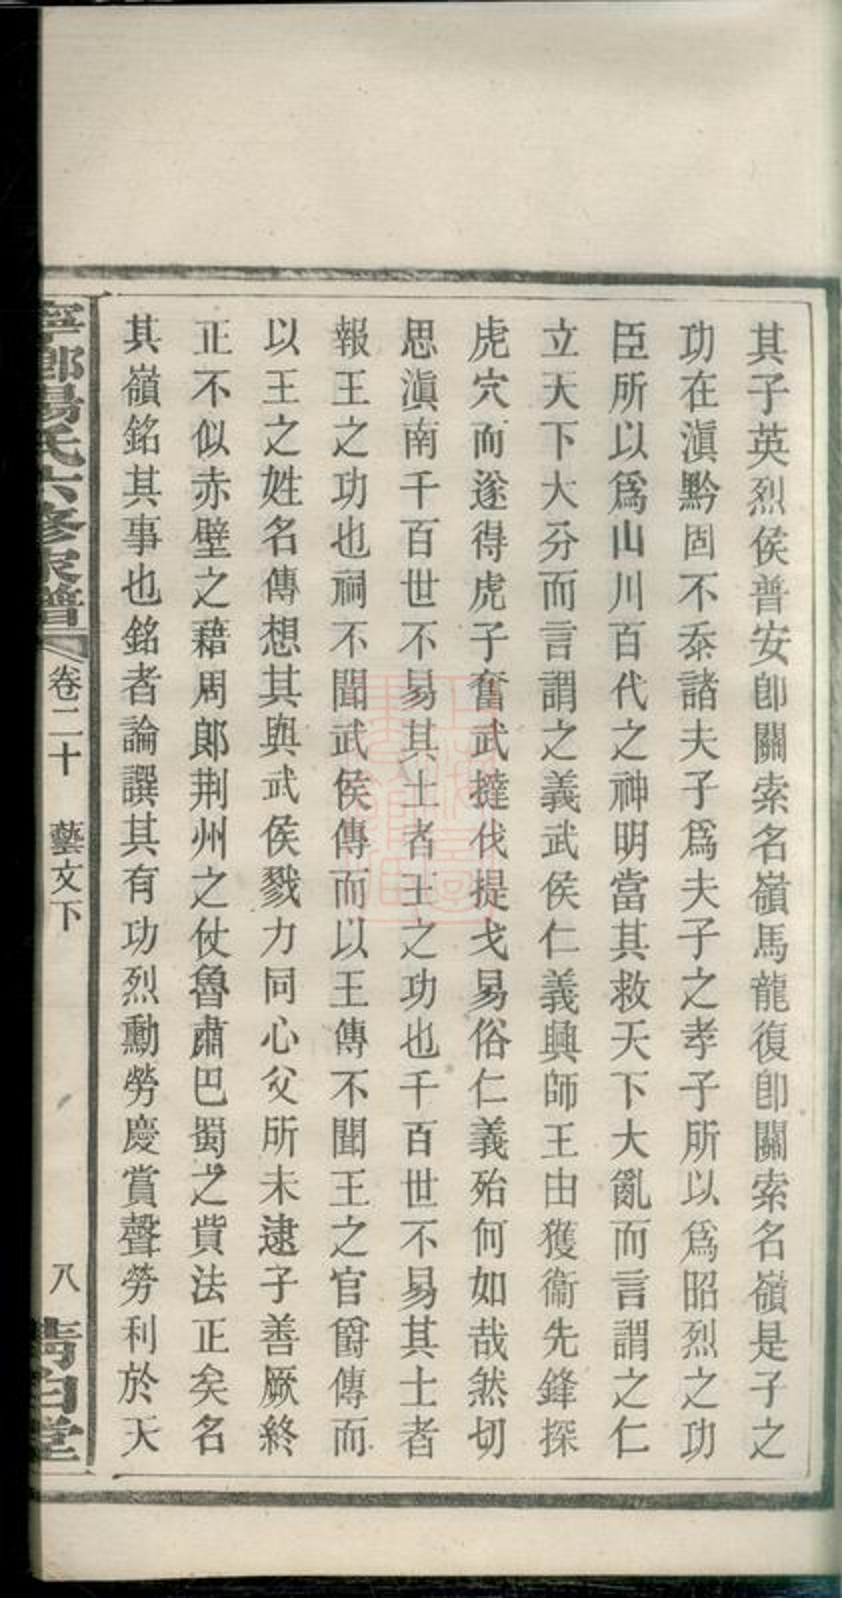 其子英烈侯普安卽關索名嶺馬龍復卽關索名嶺是子之
功在滇黔固不忝諸夫子爲夫子之孝子所以爲昭烈之功
臣所以爲山川百代之神明當其救天下大亂而言謂之仁
立天下大分而言謂之義武侯仁義興師王由獲衞先鋒探
虎穴而遂得虎子奮武撻伐提戈易俗仁義殆何如哉然切
思滇南千百世不易其土者王之功也千百世不易其士者
報王之功也祠不聞武侯傳而以王傳不聞王之官爵傳而
以王之姓名傳想其與武侯戮力同心父所未逮子善厥終
正不似赤壁之藉周郞荆州之仗魯肅巴蜀之貲法正矣名
其嶺銘其事也銘者論譔其有功烈勳勞慶賞聲勞利於天
寧鄕楊氏六修家譜 卷二十 藝文下 八 淸白堂